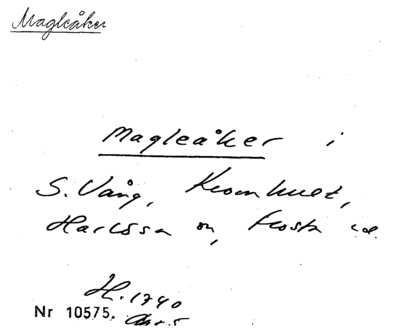 Magleåker
Magleåker i
S. Vång, Kvarnhuset,
Harlösa sn, Frosta hd.
H. 1740
Nr 10575.